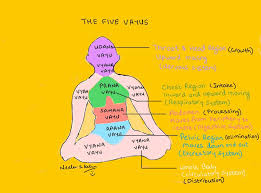 THE FIVE VAYUS
UDANA
VAYU
VYANA
VAYU
Throat & Head Region (Growth)
upward moving
VYANA
VAYU
PRANA
VAYU
VYANA
VAYU
Chest Region (Intake)
inward and upward moving
(Respiratory System)
SAMANA
VAYU
Abdomen (Processing)
moves from periphery to
APANA
VAYU
Pelvic Region (elimination)
moves down and out
(Excretory System)
VYANA
VAYU
VYANA
VAYU
Whole Body
(Circulatory System)
(Distribution)